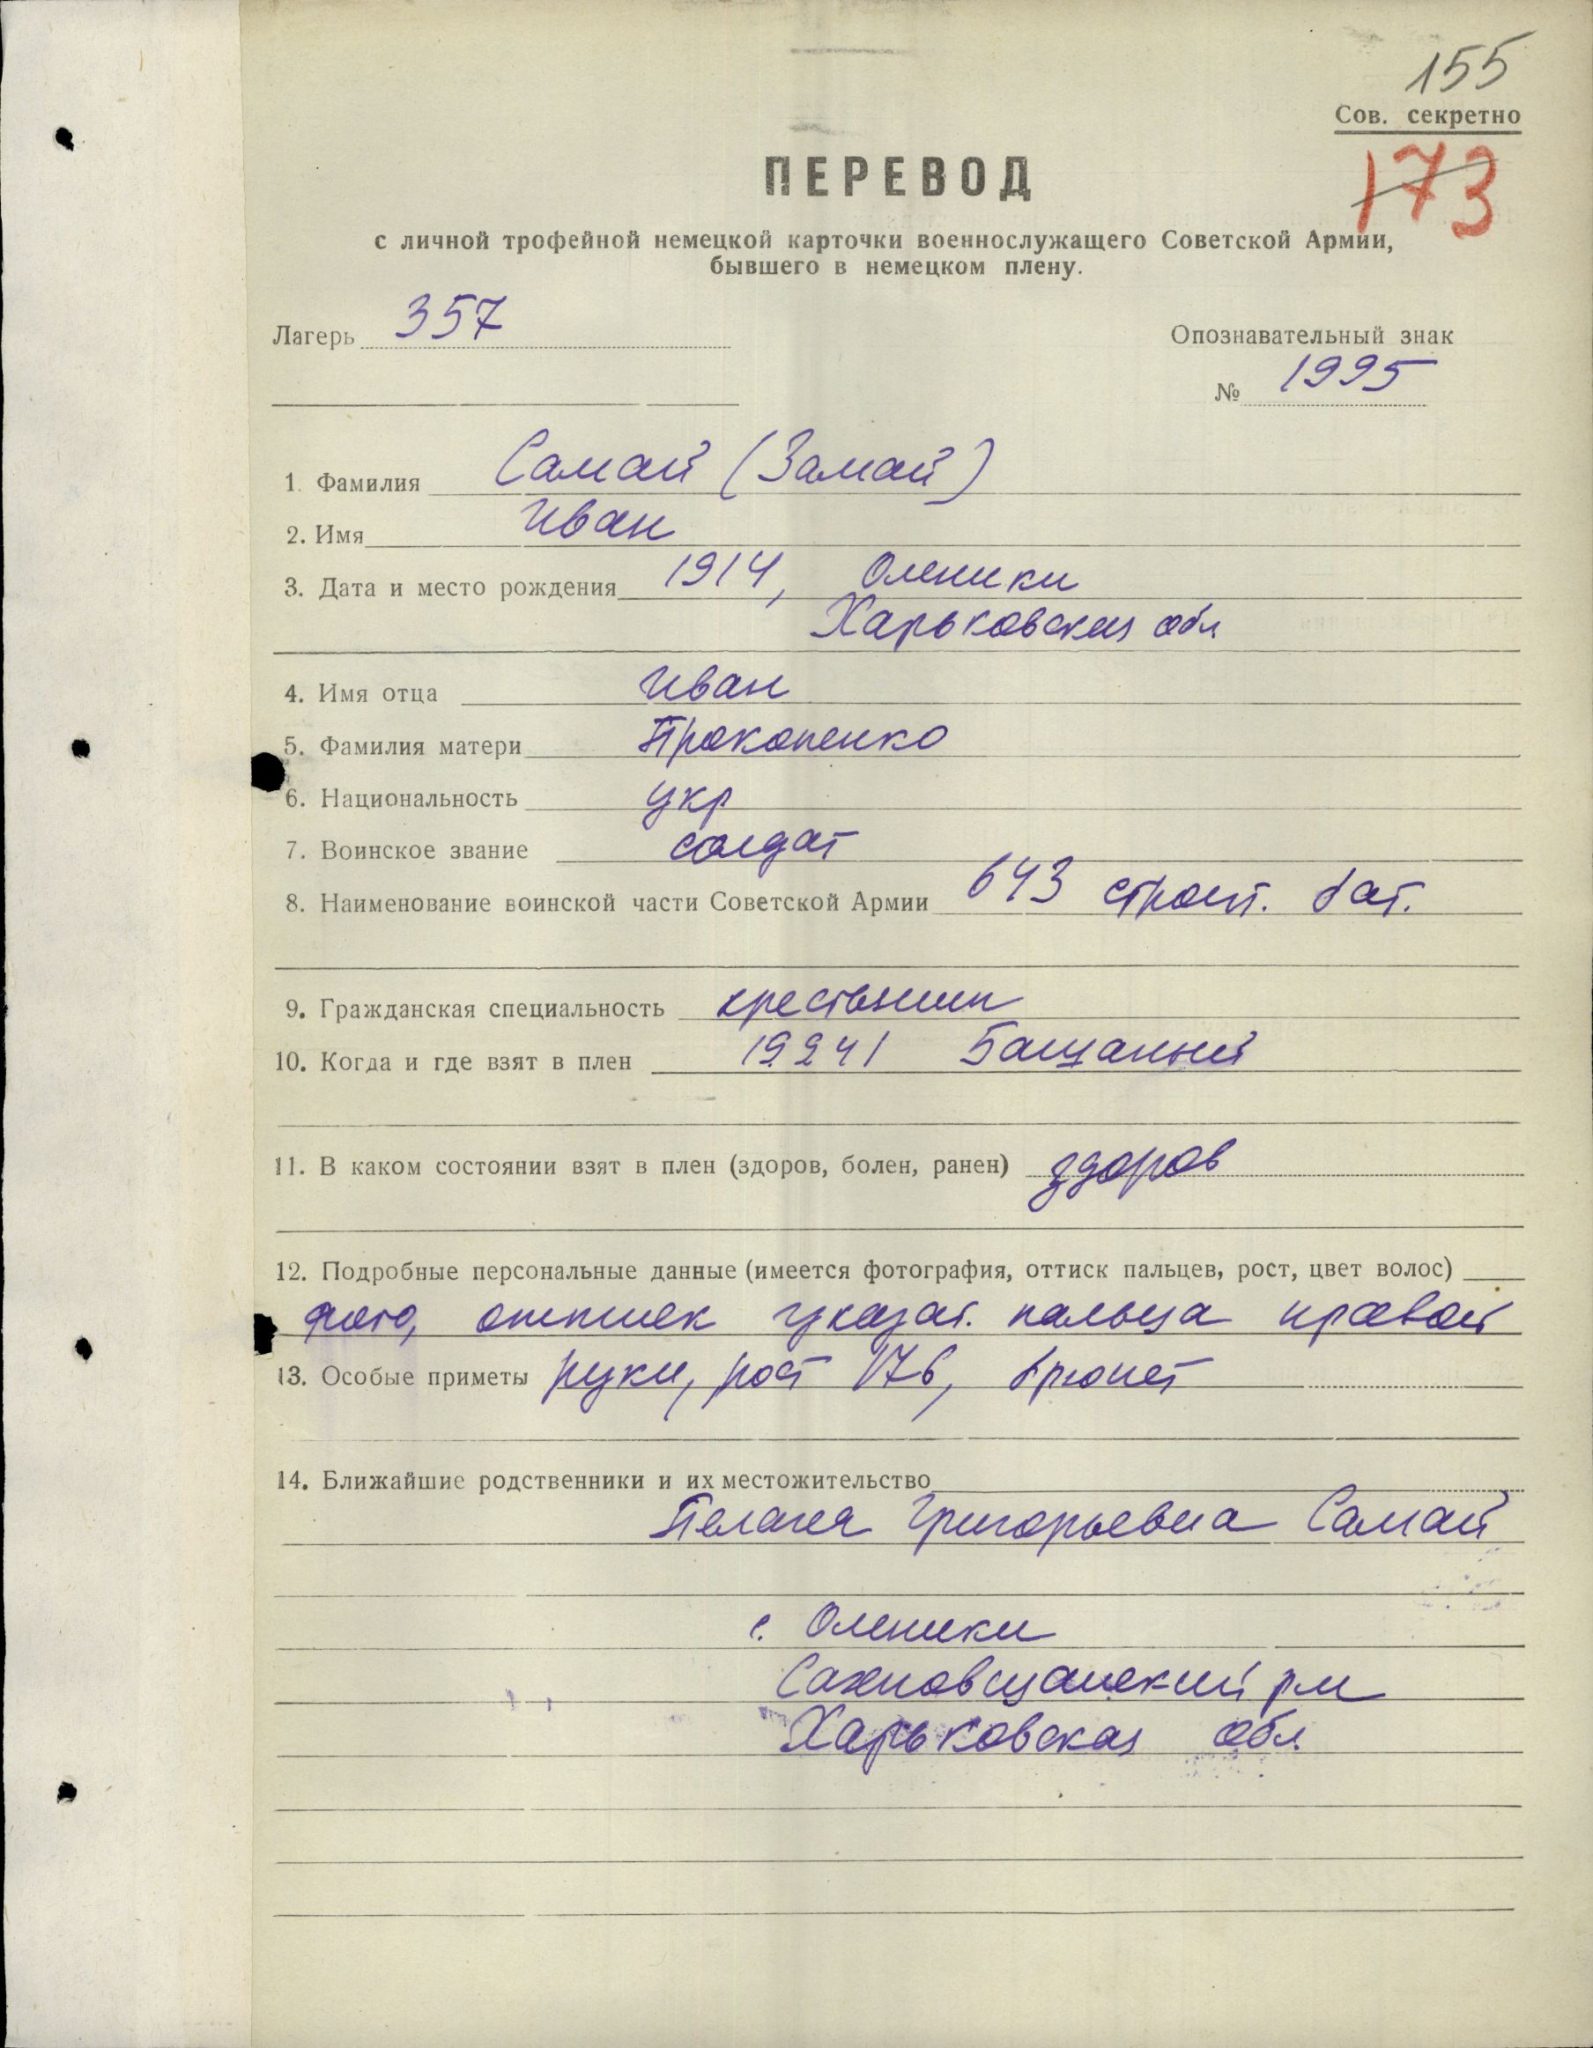 155
Сов. секретно
173
ПЕРЕВОД
с личной трофейной немецкой карточки военнослужащего Советской Армии,
бывшего в немецком плену.
Лагерь 357
Опознавательный знак
№ 1995
1. Фамилия Самай (Замай)
2. Имя Иван
3. Дата и место рождения 1914, Оленики
Харьковская обл
4. Имя отца Иван
5. Фамилия матери Прокопенко
6. Национальность укр
7. Воинское звание солдат
8. Наименование воинской части Советской Армии 643 строит. бат.
9. Гражданская специальность крестьянин
10. Когда и где взят в плен 19.9.41
11. В каком состоянии взят в плен (здоров, болен, ранен) здоров
12. Подробные персональные данные (имеется фотография, оттиск пальцев, рост, цвет волос)
фото, оттиск указат. пальца правой
13. Особые приметы руки, рост 176, брюнет
14. Ближайшие родственники и их местожительство
Пелагея Григорьевна Самай
с. Оленики
Сахновщанский р-н
Харьковская обл.